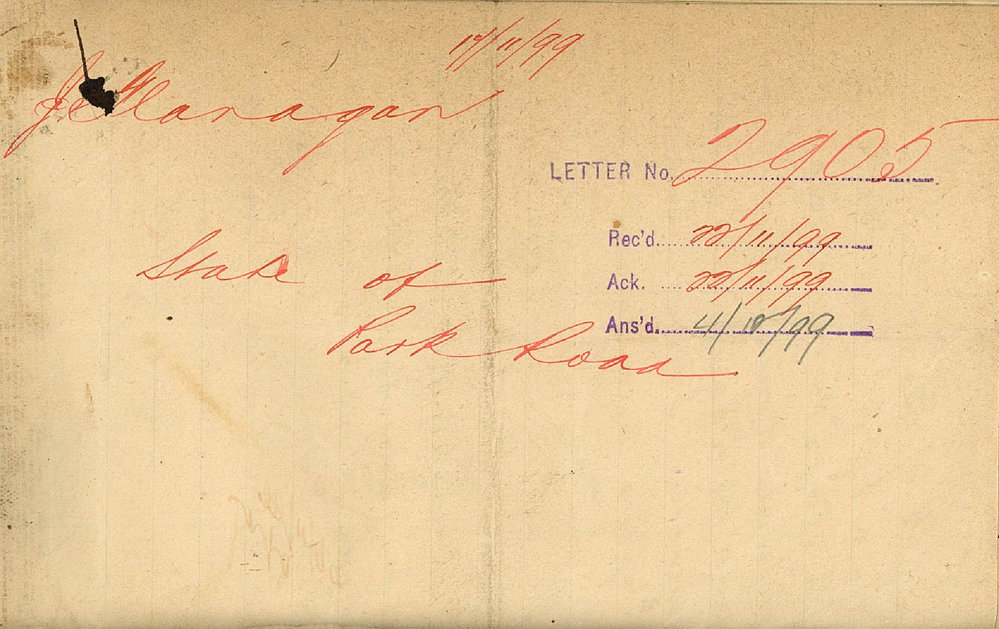 17/11/99
J Flanagan
LETTER No. 2905
Rec'd. 22/11/99
State of
Ack. 22/11/99
Ans'd. 4/12/99
Park Road